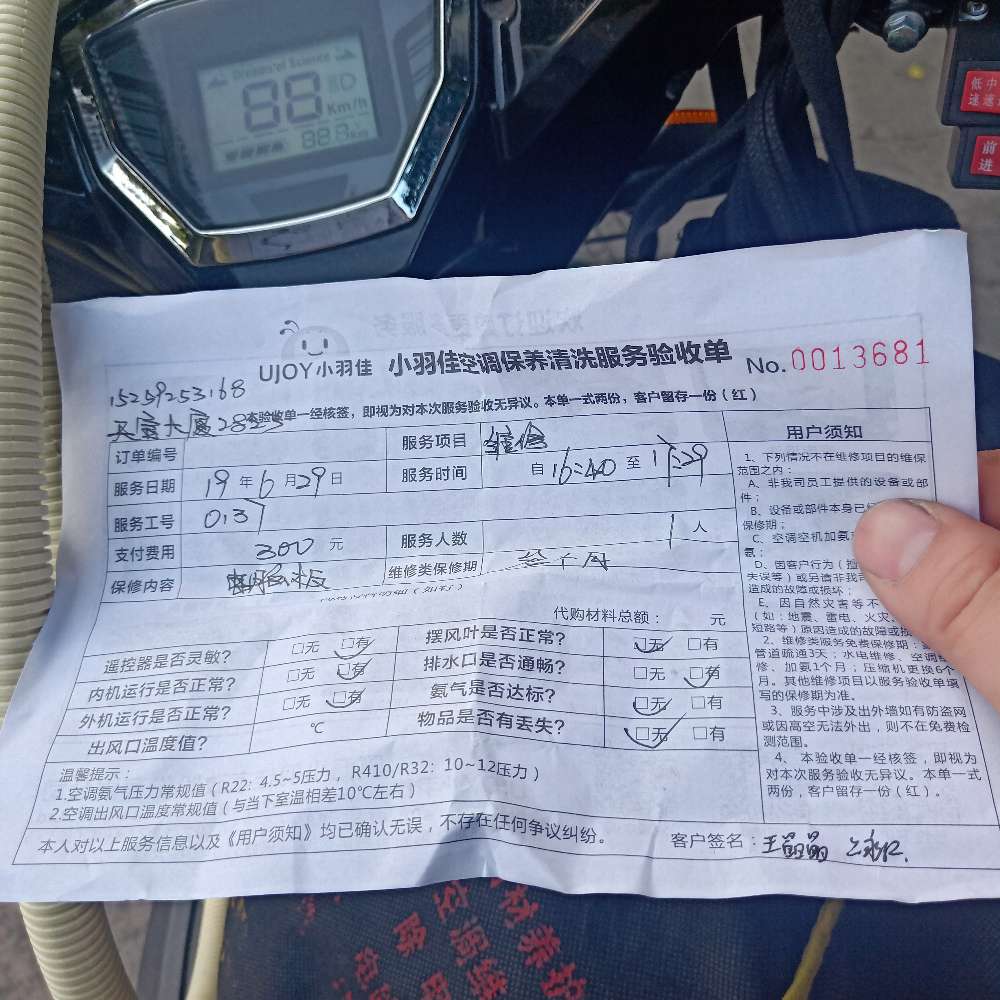 Dreams of Science
88
Km/h
低中
速速
前
进
UJOY小羽佳 小羽佳空调保养清洗服务验收单 No.0013681
15259253168
本验收单一经核签，即视为对本次服务验收无异议。本单一式两份，客户留存一份（红）
订单编号
服务项目 维修
服务日期 19年6月29日
服务时间 自16:40至17:29
服务工号 013
支付费用 300元
服务人数 1人
保修内容
维修类保修期 叁个月
代购材料总额： 元
遥控器是否灵敏？ □无 □有
摆风叶是否正常？ □无 □有
内机运行是否正常？ □无 □有
排水口是否通畅？ □无 □有
外机运行是否正常？ □无 □有
氨气是否达标？ □无 □有
出风口温度值？ ℃
物品是否有丢失？ □无 □有
温馨提示：
1.空调氨气压力常规值（R22：4.5~5压力，R410/R32：10~12压力）
2.空调出风口温度常规值（与当下室温相差10℃左右）
本人对以上服务信息以及《用户须知》均已确认无误，不存在任何争议纠纷。
客户签名：
用户须知
1、下列情况不在维修项目的维保
范围之内：
A、非我司员工提供的设备或部
件；
B、设备或部件本身已
保修期；
C、空调空机加氨
氨；
D、因客户行为（
失误等）或另请非我司
造成的故障或损坏；
E、因自然灾害等不
（如：地震、雷电、火灾、
短路等）原因造成的故障或损
2、维修类服务免费保修期：
管道疏通3天；水电维修、空调维
修、加氨1个月；压缩机更换6个
月。其他维修项目以服务验收单填
写的保修期为准。
3、服务中涉及出外墙如有防盗网
或因高空无法外出，则不在免费检
测范围。
4、本验收单一经核签，即视为
对本次服务验收无异议。本单一式
两份，客户留存一份（红）。